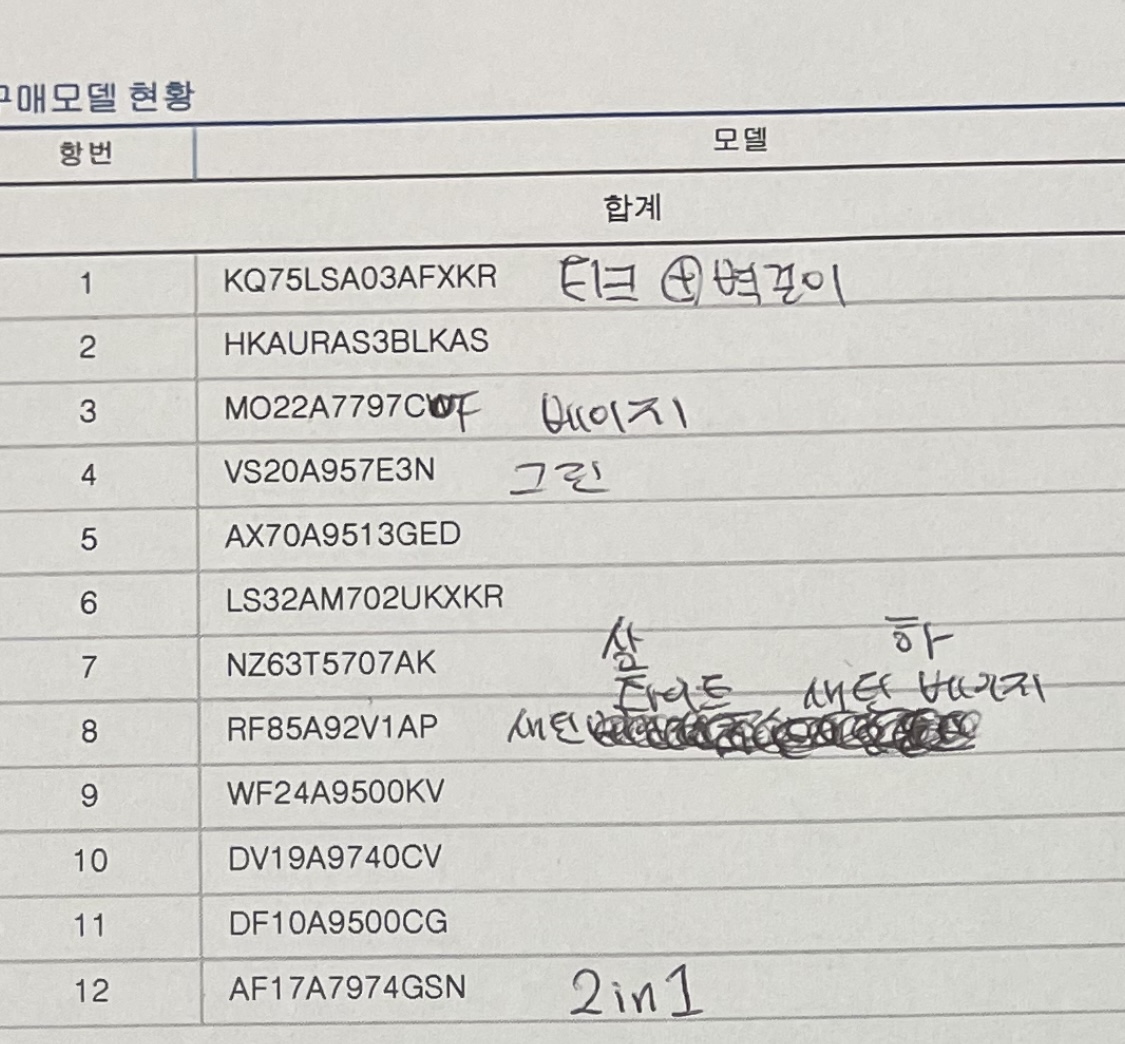 구매모델 현황
항번 모델
합계
1 KQ75LSA03AFXKR 티크 ⊕ 벽걸이
2 HKAURAS3BLKAS
3 MO22A7797CWF 베이지
4 VS20A957E3N 그린
5 AX70A9513GED
6 LS32AM702UKXKR
상 하
7 NZ63T5707AK
새틴 베이지
8 RF85A92V1AP 새틴
9 WF24A9500KV
10 DV19A9740CV
11 DF10A9500CG
12 AF17A7974GSN 2in1